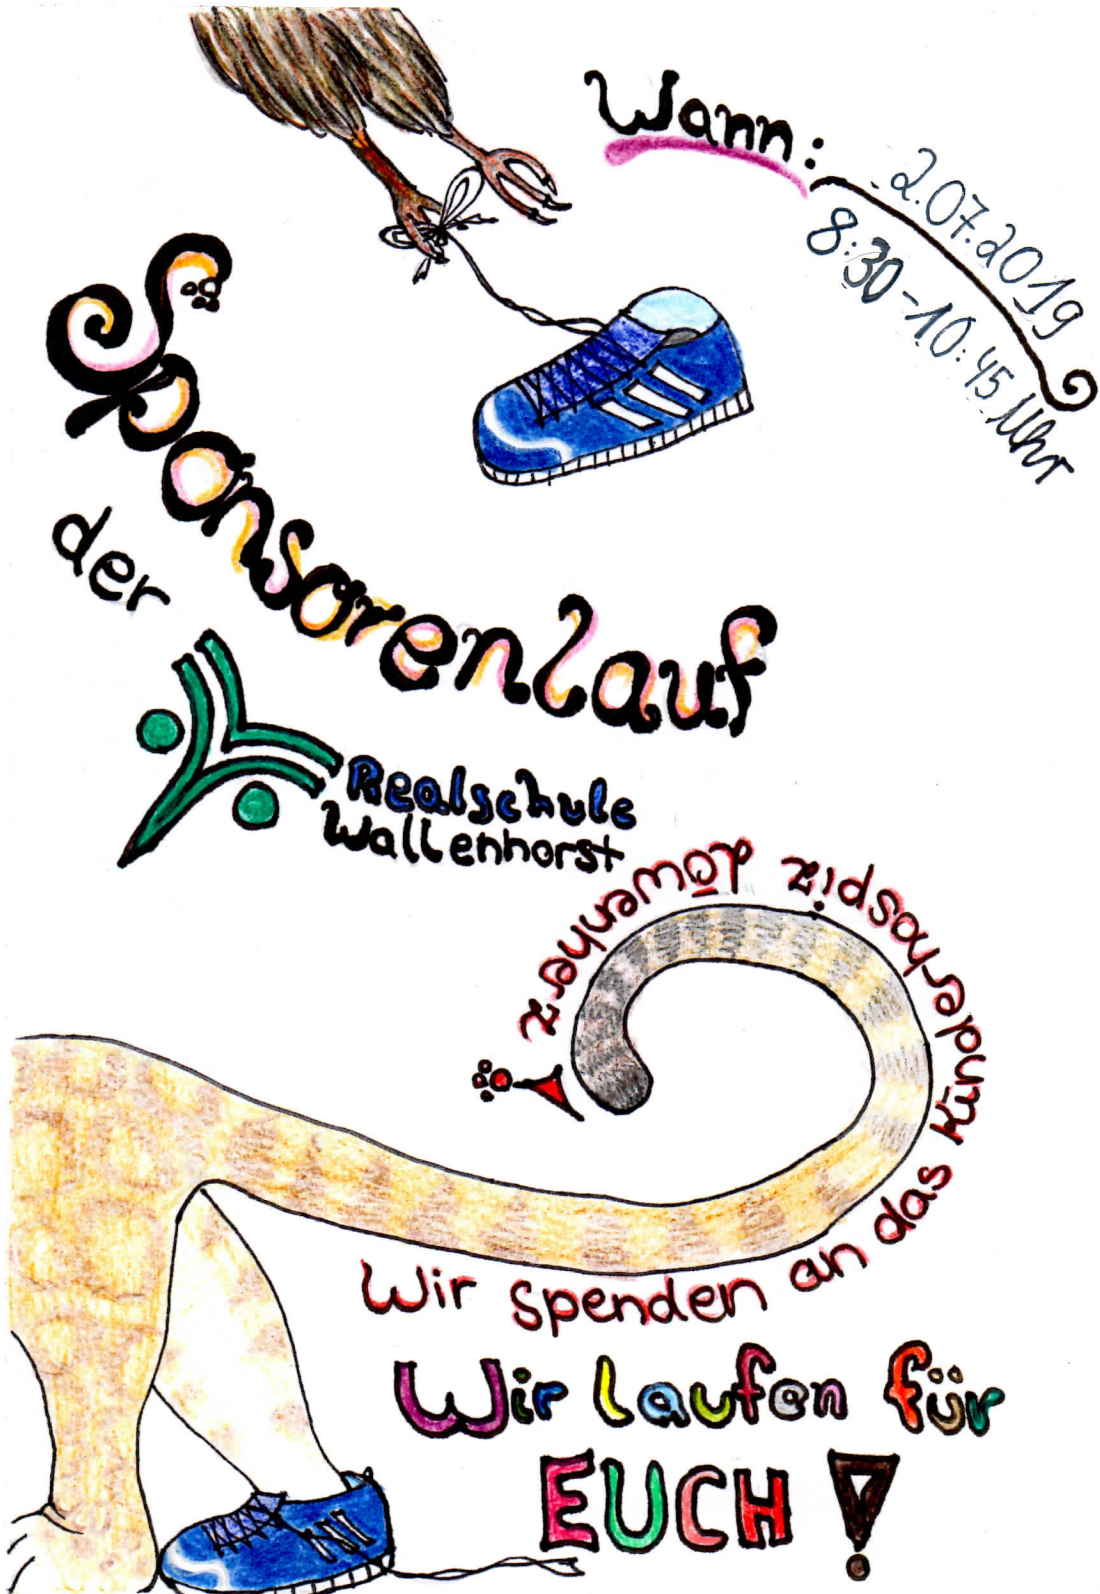 Wann:
2.07.2019
8:30-10:45 Uhr
Sponsorenlauf
der
Realschule
Wallenhorst
Wir spenden an das Kinderhospiz Löwenherz!
Wir laufen für
EUCH!